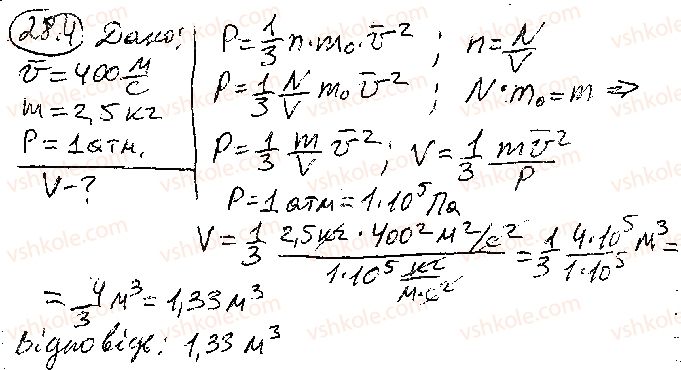 28.4 Дано:
v̄ = 400 м/с
m = 2,5 кг
P = 1 атм.
V - ?
P = 1/3 n · m₀ · v̄² ; n = N/V
P = 1/3 N/V m₀ v̄² ; N · m₀ = m ⇒
P = 1/3 m/V v̄² ; V = 1/3 mv̄²/P
P = 1 атм = 1·10⁵ Па
V = 1/3 (2,5 кг · 400² м²/с²)/(1·10⁵ кг/(м·с²)) = 1/3 (4·10⁵)/(1·10⁵) м³ =
= 4/3 м³ = 1,33 м³
Відповідь: 1,33 м³
vshkole.com